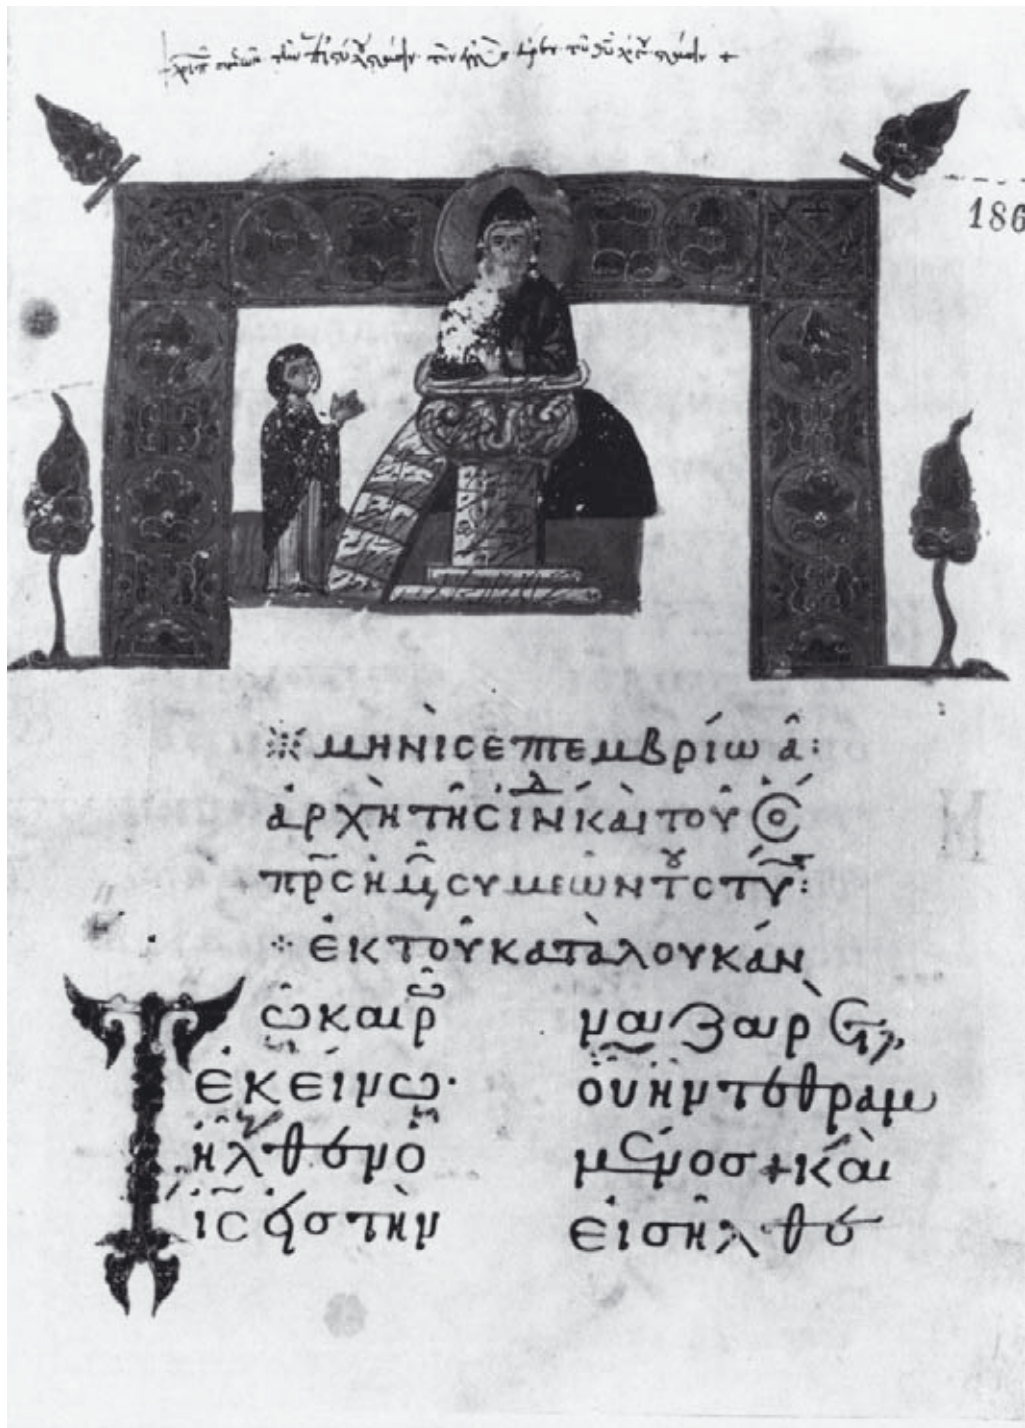 186
μηνὶ σεπτεμβρίω α̂:
ἀρχὴ τῆς ἰν̅δ̅ καὶ τοῦ ὁσ
πρ̅ς ἡμ̅ συμεὼν τοῦ στυ̅:
ἐκ τοῦ κατὰ λουκάν
Τῶ καιρῶ
ἐκείνω·
ἦλθεν ὁ
ι̅ς̅ εἰς τὴν
ναζαρὲτ
οὗ ἦν τεθραμ
μένος + καὶ
εἰσῆλθεν